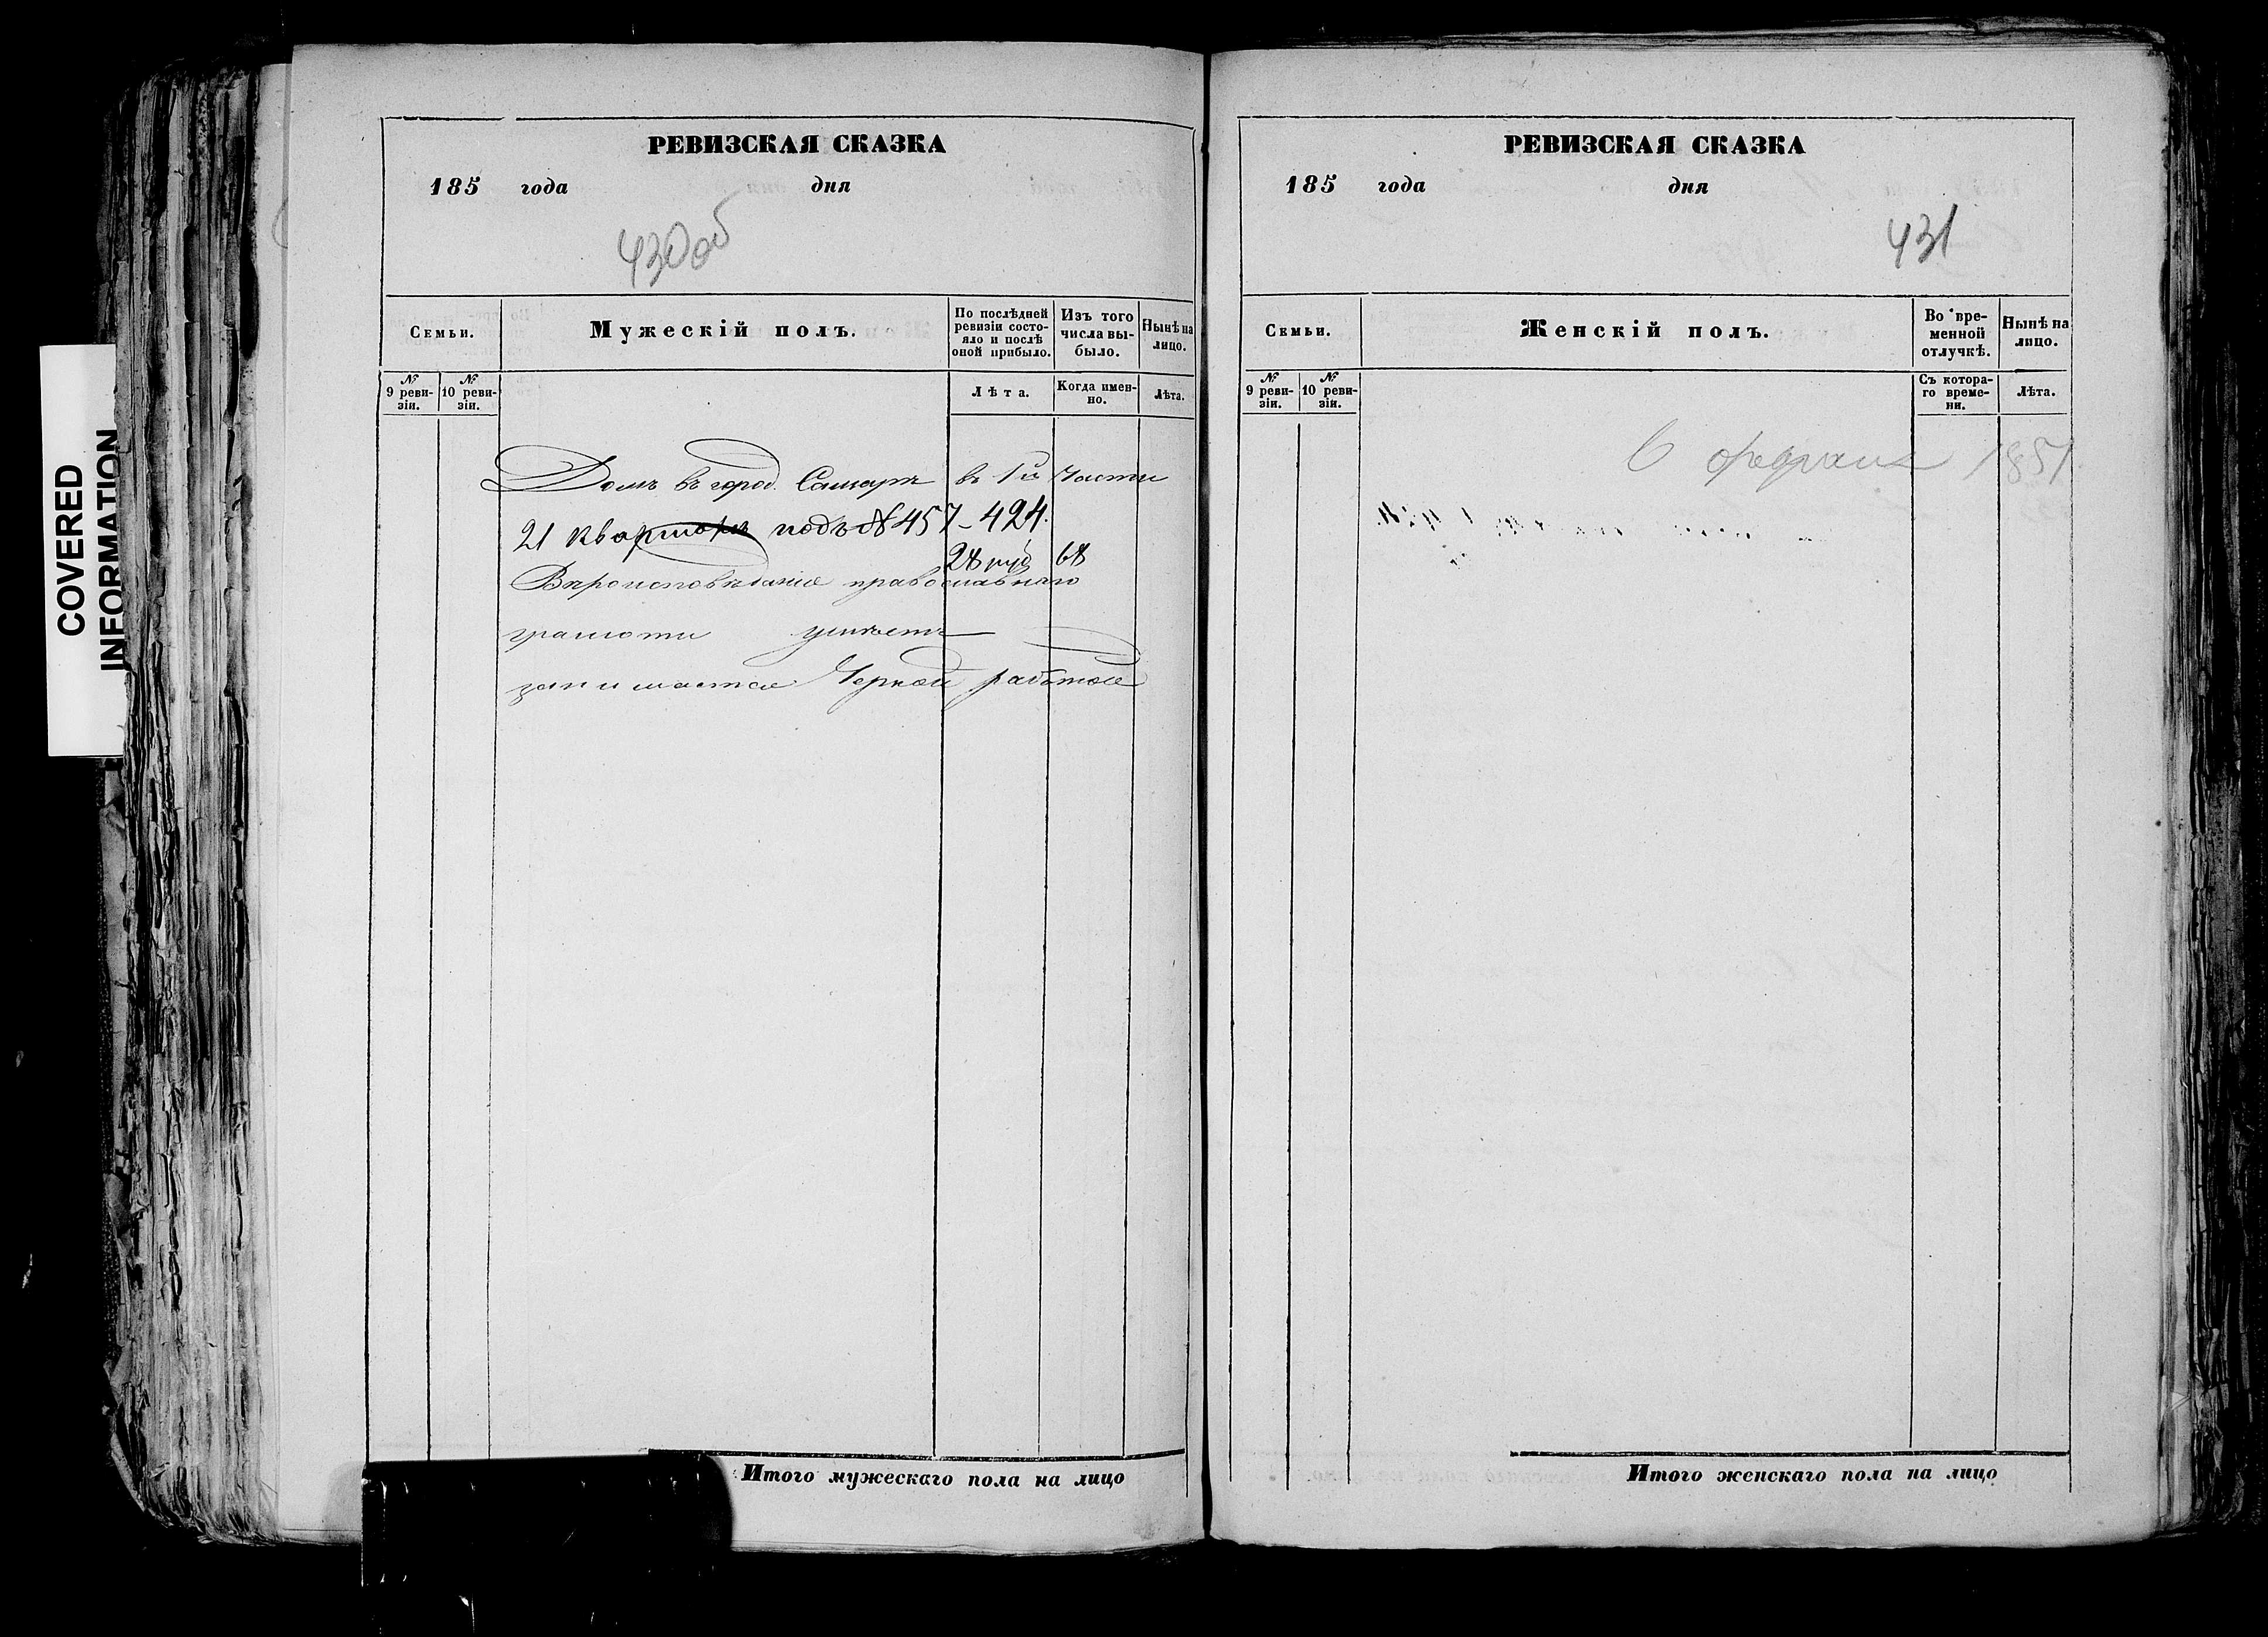 COVERED
INFORMATION
РЕВИЗСКАЯ СКАЗКА
185 года дня
430об
Семьи.
Мужескій полъ.
По послѣдней ревизіи состояло и послѣ оной прибыло.
Изъ того числа выбыло.
Нынѣ на лицо.
№ 9 ревизіи.
№ 10 ревизіи.
Лѣта.
Когда именно.
Лѣта.
Домъ въ город. Самарѣ въ 1й Части
21 квартала подъ № 457-424.
28 руб 68
Вѣроисповѣданія православнаго
грамоти умѣетъ
занимается Черной работой
Итого мужескаго пола на лицо
РЕВИЗСКАЯ СКАЗКА
185 года дня
431
Семьи.
Женскій полъ.
Во временной отлучкѣ.
Нынѣ на лицо.
№ 9 ревизіи.
№ 10 ревизіи.
Съ котораго времени.
Лѣта.
6 1851
Итого женскаго пола на лицо